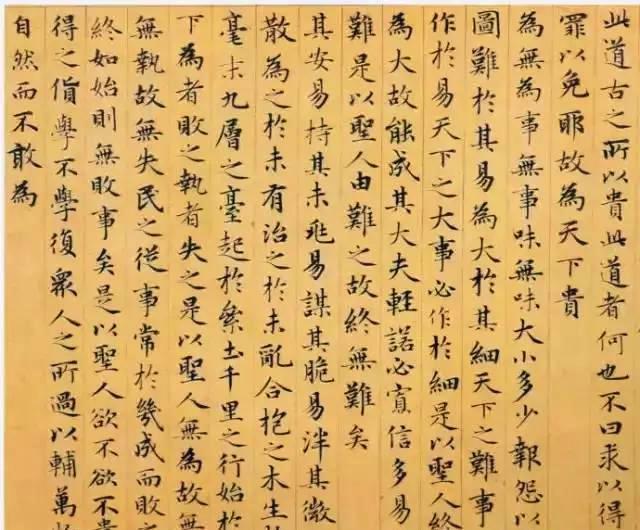 此道古之所以貴此道者何也不曰求以得
罪以免耶故為天下貴
為無為事無事味無味大小多少報怨以
圖難於其易為大於其細天下之難事
作於易天下之大事必作於細是以聖人終
為大故能成其大夫輕諾必寡信多易
難是以聖人由難之故終無難矣
其安易持其未兆易謀其脆易泮其微
散為之於未有治之於未亂合抱之木生
毫末九層之臺起於累土千里之行始於
下為者敗之執者失之是以聖人無為故
無執故無失民之從事常於幾成而敗之
終如始則無敗事矣是以聖人欲不欲不貴
得之貨學不學復眾人之所過以輔萬
自然而不敢為